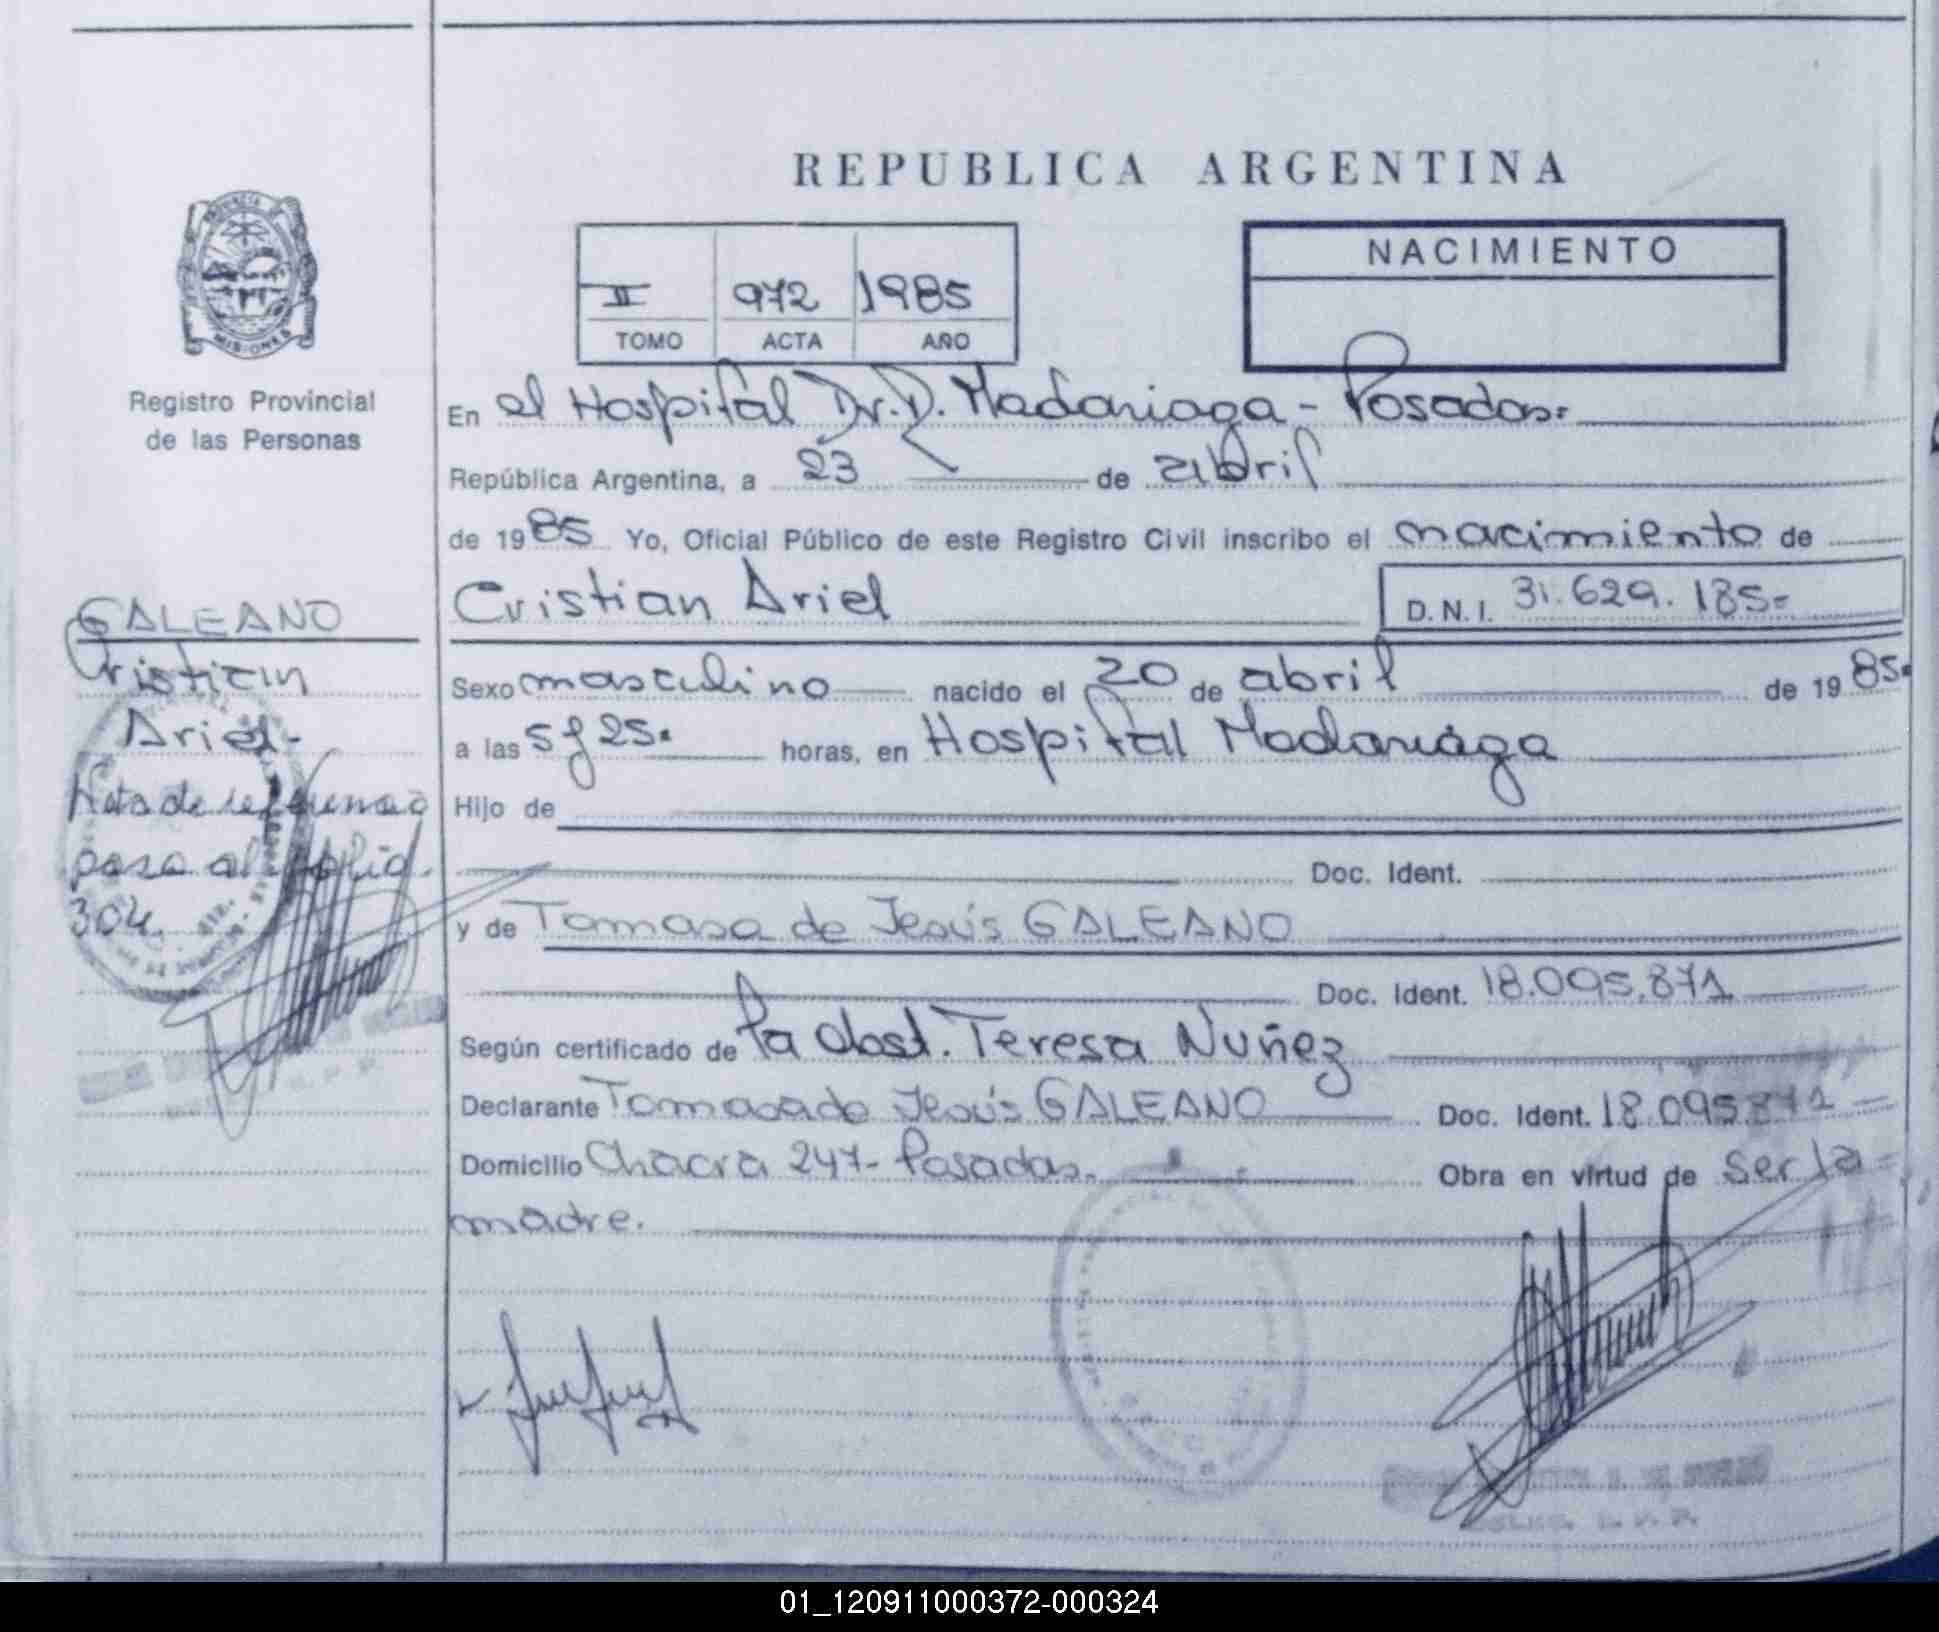 REPUBLICA ARGENTINA
NACIMIENTO
II 972 1985
TOMO ACTA AÑO
MISIONES
Registro Provincial
de las Personas
En el Hospital Dr. R. Madariaga - Posadas=
República Argentina, a 23 de abril
de 1985 Yo, Oficial Público de este Registro Civil inscribo el nacimiento de
Cristian Ariel
D.N.I. 31.629.185=
GALEANO
Cristian
Ariel-
Nota de referencia
pasa al folio.
304.
Sexo masculino nacido el 20 de abril de 1985=
a las 5 y 25= horas, en Hospital Madariaga
Hijo de
Doc. Ident.
y de Tomasa de Jesús GALEANO
Doc. Ident. 18.095.871
Según certificado de la Obst. Teresa Nuñez
Declarante Tomasa de Jesús GALEANO Doc. Ident. 18.095.871
Domicilio Chacra 247- Posadas. Obra en virtud de ser la=
madre.
01_120911000372-000324